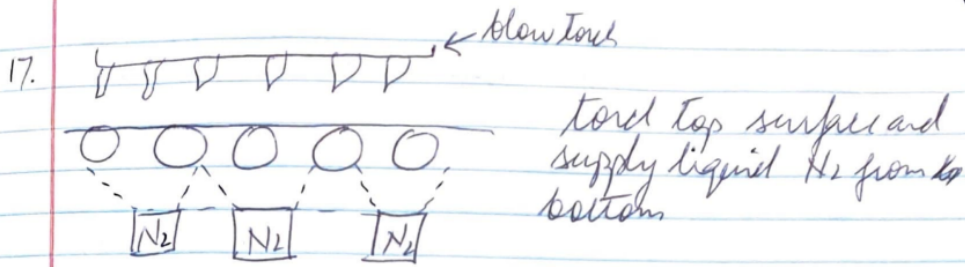 blow torch
17.
torch top surface and
supply liquid N2 from
bottom
N2
N2
N2